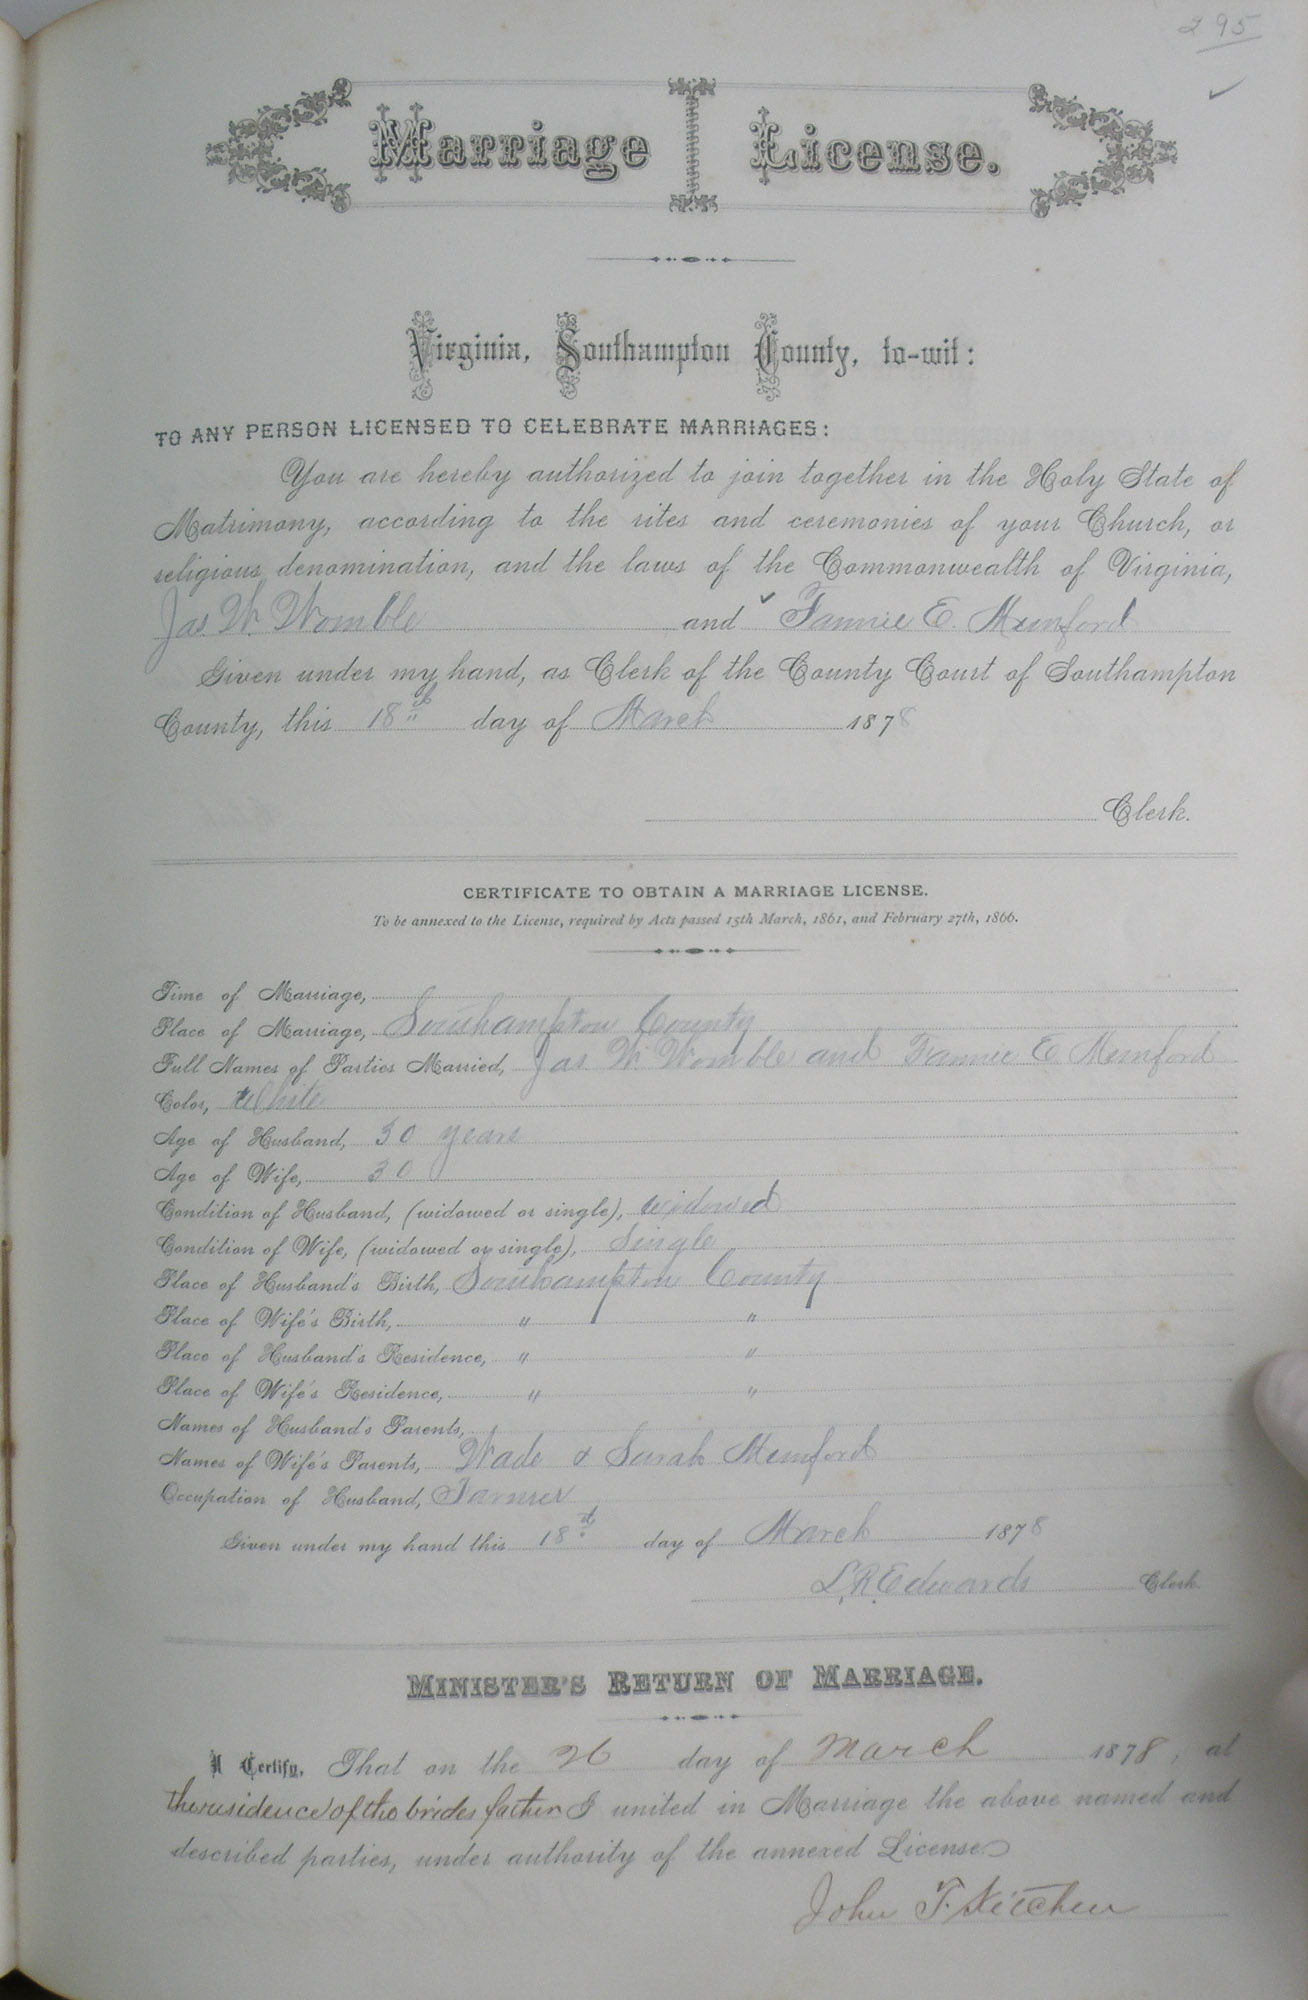 295
Marriage License.
Virginia, Southampton County, to-wit:
TO ANY PERSON LICENSED TO CELEBRATE MARRIAGES:
You are hereby authorized to join together in the Holy State of
Matrimony, according to the rites and ceremonies of your Church, or
religious denomination, and the laws of the Commonwealth of Virginia,
Jas. W. Womble and Fannie E. Mumford
Given under my hand, as Clerk of the County Court of Southampton
County, this 18th day of March 1878
Clerk.
CERTIFICATE TO OBTAIN A MARRIAGE LICENSE.
To be annexed to the License, required by Acts passed 15th March, 1861, and February 27th, 1866.
Time of Marriage,
Place of Marriage, Southampton County
Full Names of Parties Married, Jas W. Womble and Fannie E Mumford
Color, White
Age of Husband, 50 years
Age of Wife, 30
Condition of Husband, (widowed or single), widowed
Condition of Wife, (widowed or single), Single
Place of Husband's Birth, Southampton County
Place of Wife's Birth, " "
Place of Husband's Residence, " "
Place of Wife's Residence, " "
Names of Husband's Parents,
Names of Wife's Parents, Wade & Sarah Mumford
Occupation of Husband, Farmer
Given under my hand this 18th day of March 1878
L. R. Edwards Clerk
MINISTER'S RETURN OF MARRIAGE.
I Certify, That on the 26 day of March 1878, at
the residence of the brides father I united in Marriage the above named and
described parties, under authority of the annexed License.
John F. Kitchen